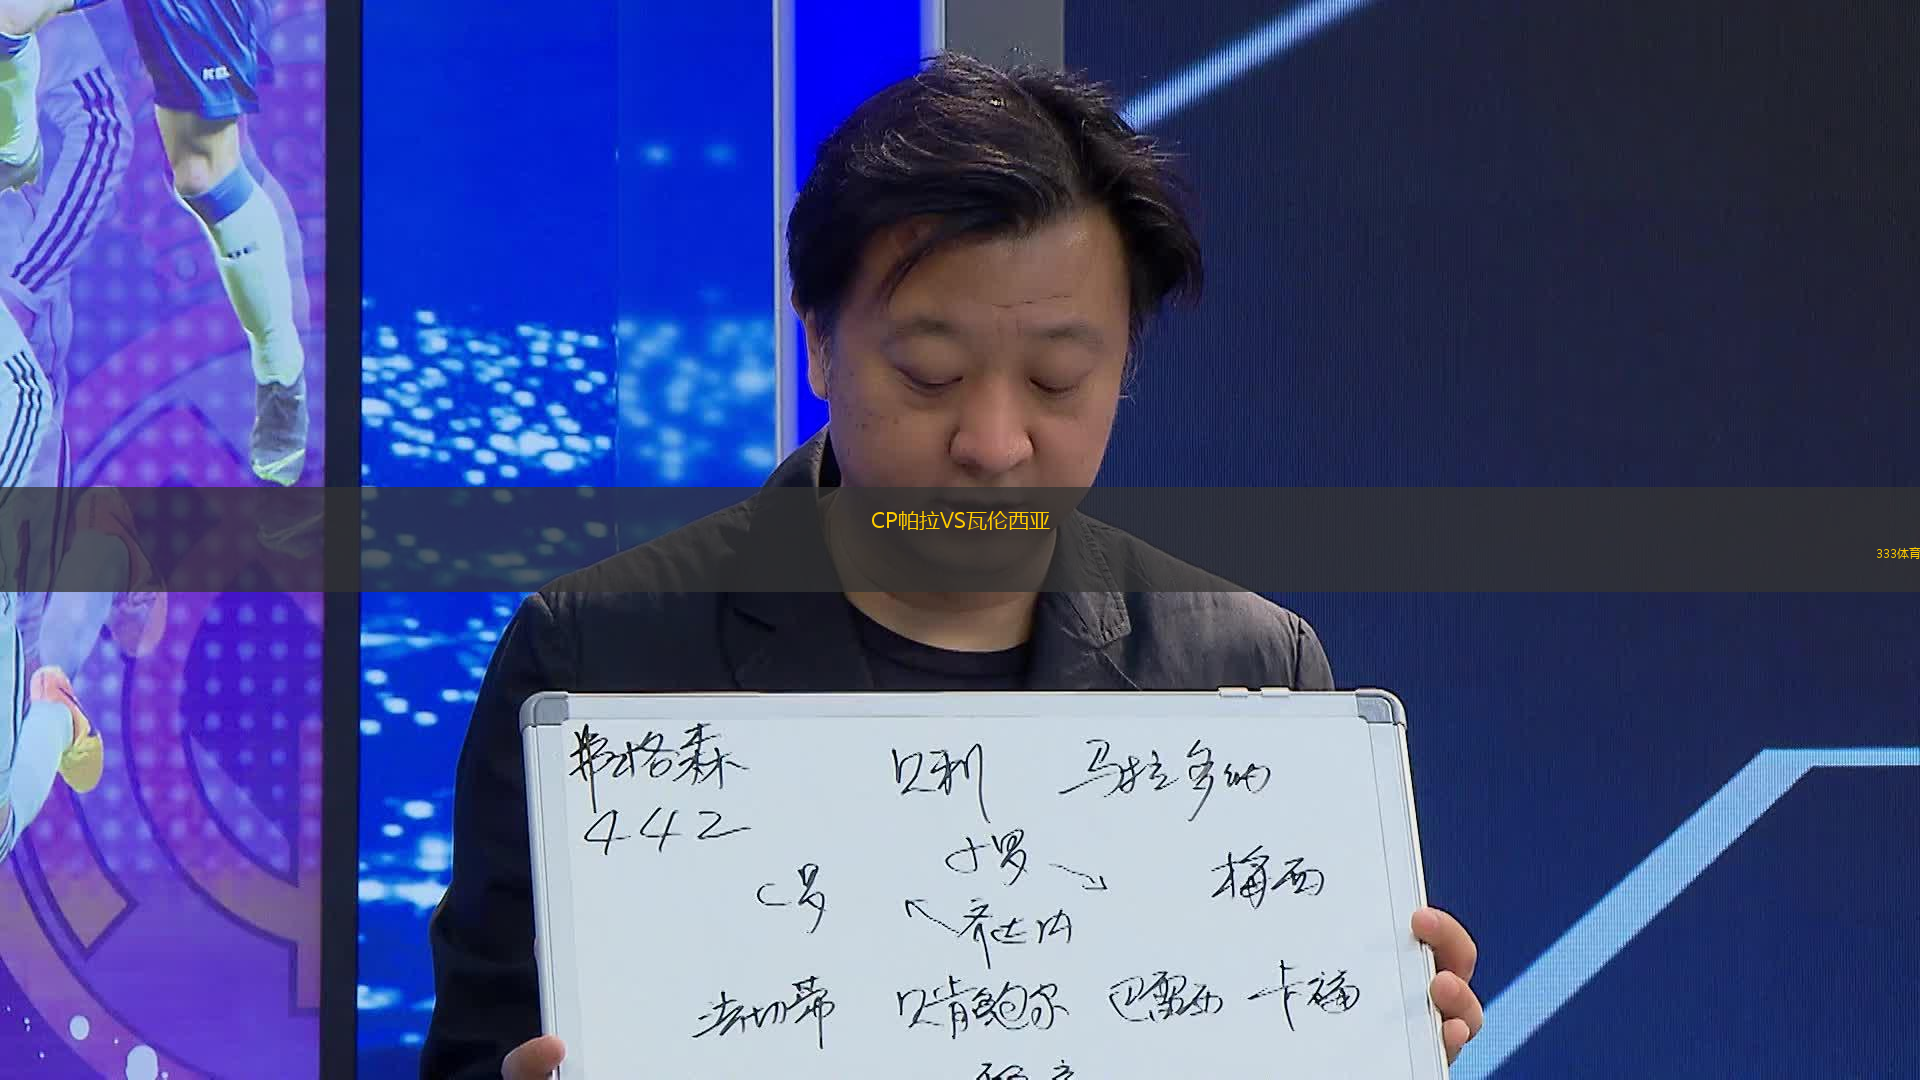 KEL
CP帕拉VS瓦伦西亚
333体育
弗格森 贝利 马拉多纳
442
小罗
C罗 梅西
齐达内
法切蒂 贝肯鲍尔 巴雷西 卡福